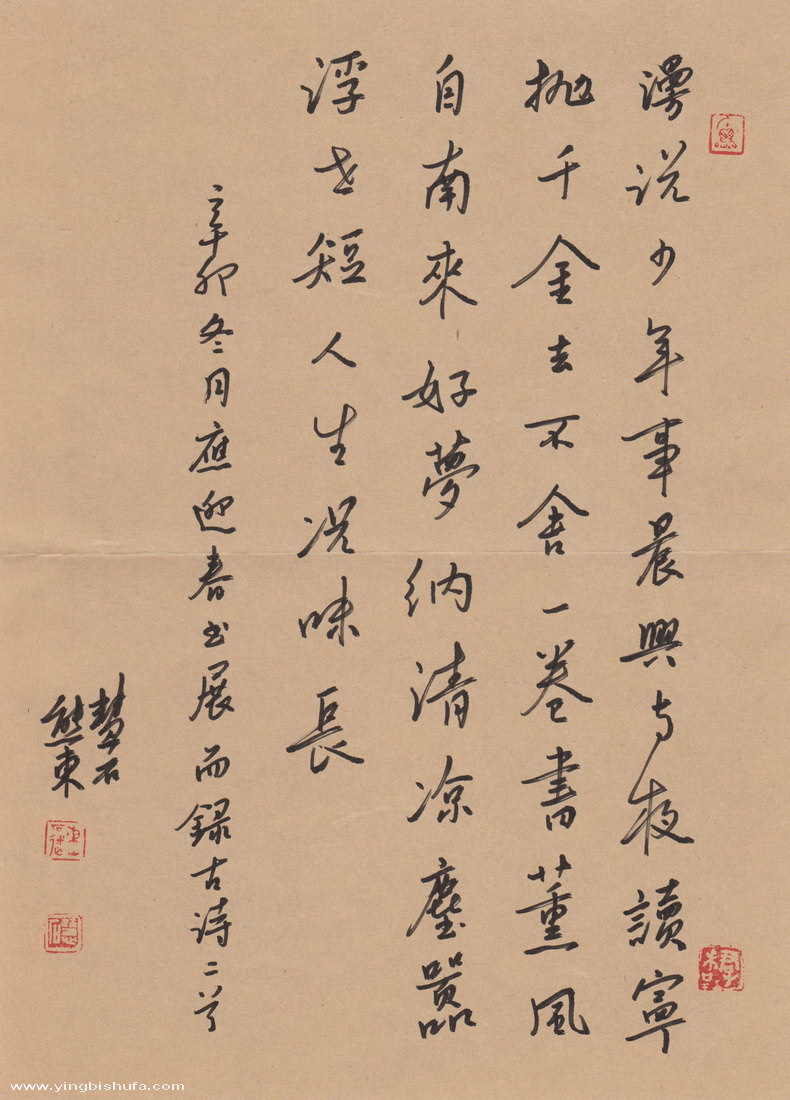 漫説少年事晨興与夜讀寧
抛千金去不舍一卷書薰風
自南來好夢納清凉塵囂
浮世短人生況味長
辛卯冬月應迎春书展而録古诗二首
熊東
www.yingbishufa.com